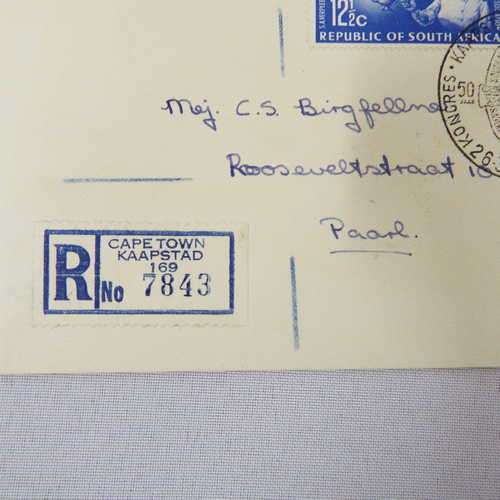 12½c
REPUBLIC OF SOUTH AFRICA
50
KONGRES
26
Mej. C.S. Birgfellne
Rooseveltstraat 10
Paarl.
R
CAPE TOWN
KAAPSTAD
169
No 7843